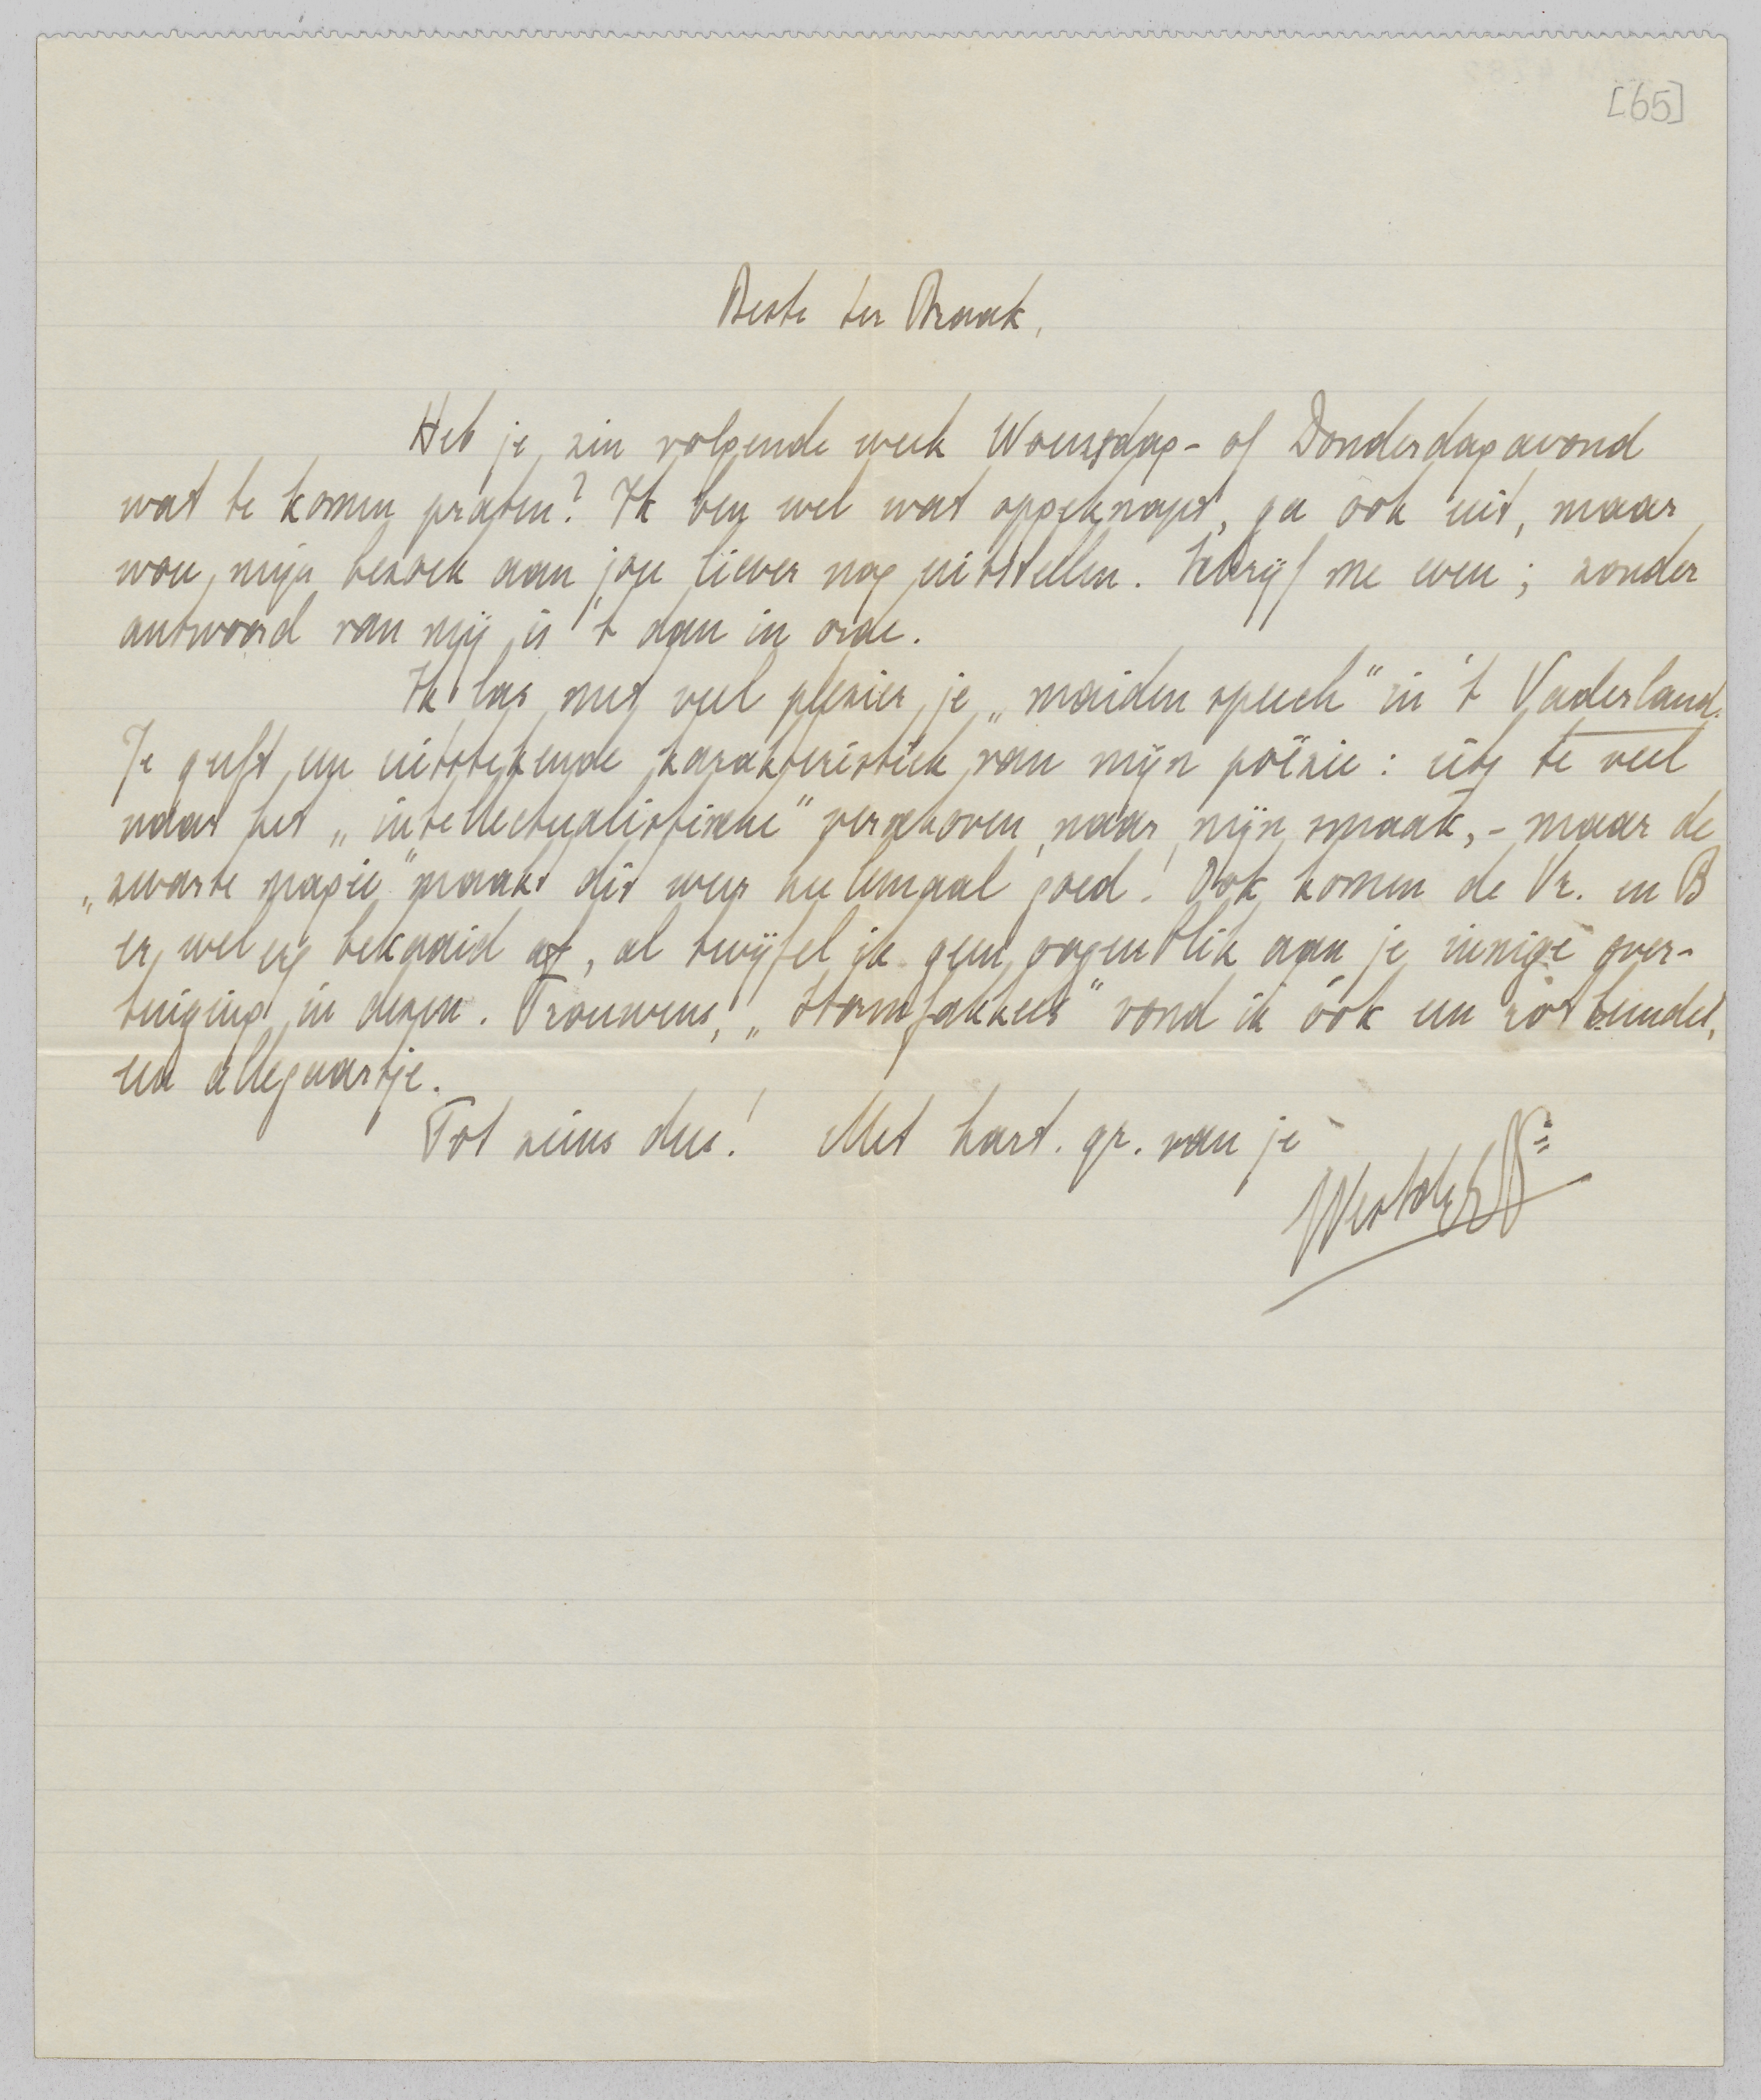 [65]
Beste ter Braak,
Heb je zin volgende week Woensdag- of Donderdagavond
wat te komen praten? Ik ben wel wat opgeknapt, ga ook uit, maar
wou mijn bezoek aan jou liever nog uitstellen. Schrijf me even; zonder
antwoord van mij is 't dan in orde.
Ik las met veel plezier je „maiden speech" in 't Vaderland.
Je geeft een uitstekende karakteristiek van mijn poëzie: iets te veel
naar het „intellectualistische" verschoven, naar mijn smaak, - maar de
„zwarte magie" maakt dit weer heelemaal goed! Ook komen de Vr. en B
er wel erg bekaaid af, al twijfel ik geen oogenblik aan je innige over-
tuiging in dezen. Trouwens, „Stormfakkels" vond ik óók een rotbundel,
een allegaartje.
Tot ziens dus! Met hart. gr. van je